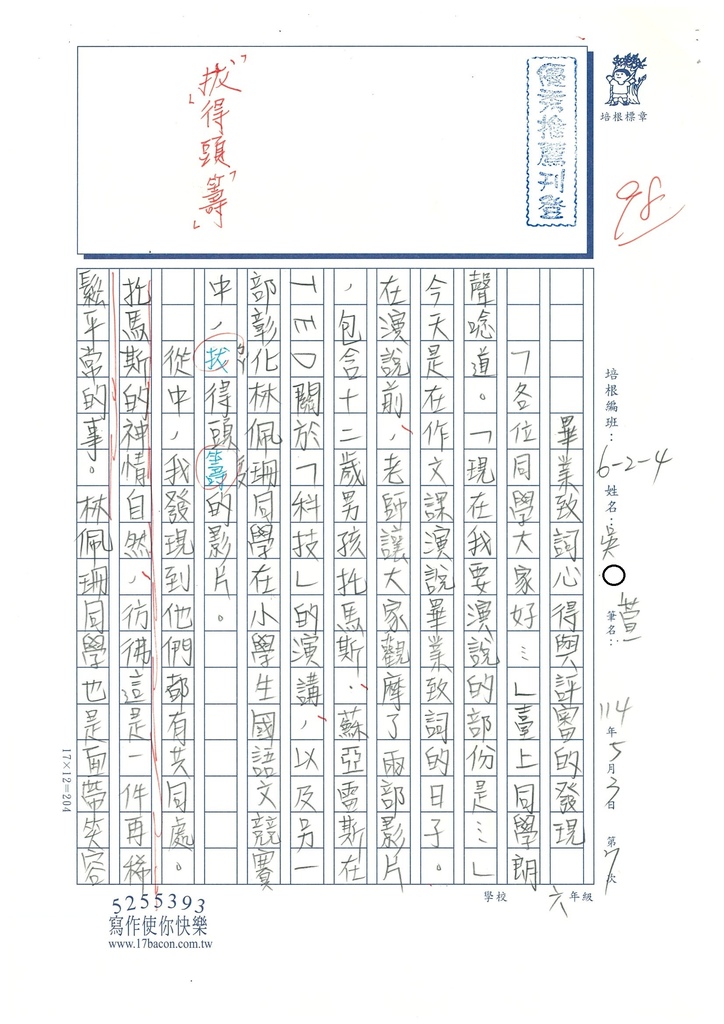 培根標章
98
優秀推薦刊登
「拔得頭籌」
培根編班：6-2-4 姓名：吳○萱 筆名：
114年5月3日 第7次
畢業致詞心得與評審的發現
「各位同學大家好…」臺上同學朗
聲唸道。「現在我要演說的部份是…」
今天是在作文課演說畢業致詞的日子。
在演說前，老師讓大家觀摩了兩部影片
，包含十二歲男孩托馬斯．蘇亞雷斯在
TED關於「科技」的演講，以及另一
部彰化林佩珊同學在小學生國語文競賽
中，拔得頭籌的影片。
從中，我發現到他們都有共同處。
托馬斯的神情自然，彷彿這是一件再稀
鬆平常的事。林佩珊同學也是面帶笑容
17×12=204
學校 六年級
5255393
寫作使你快樂
www.17bacon.com.tw